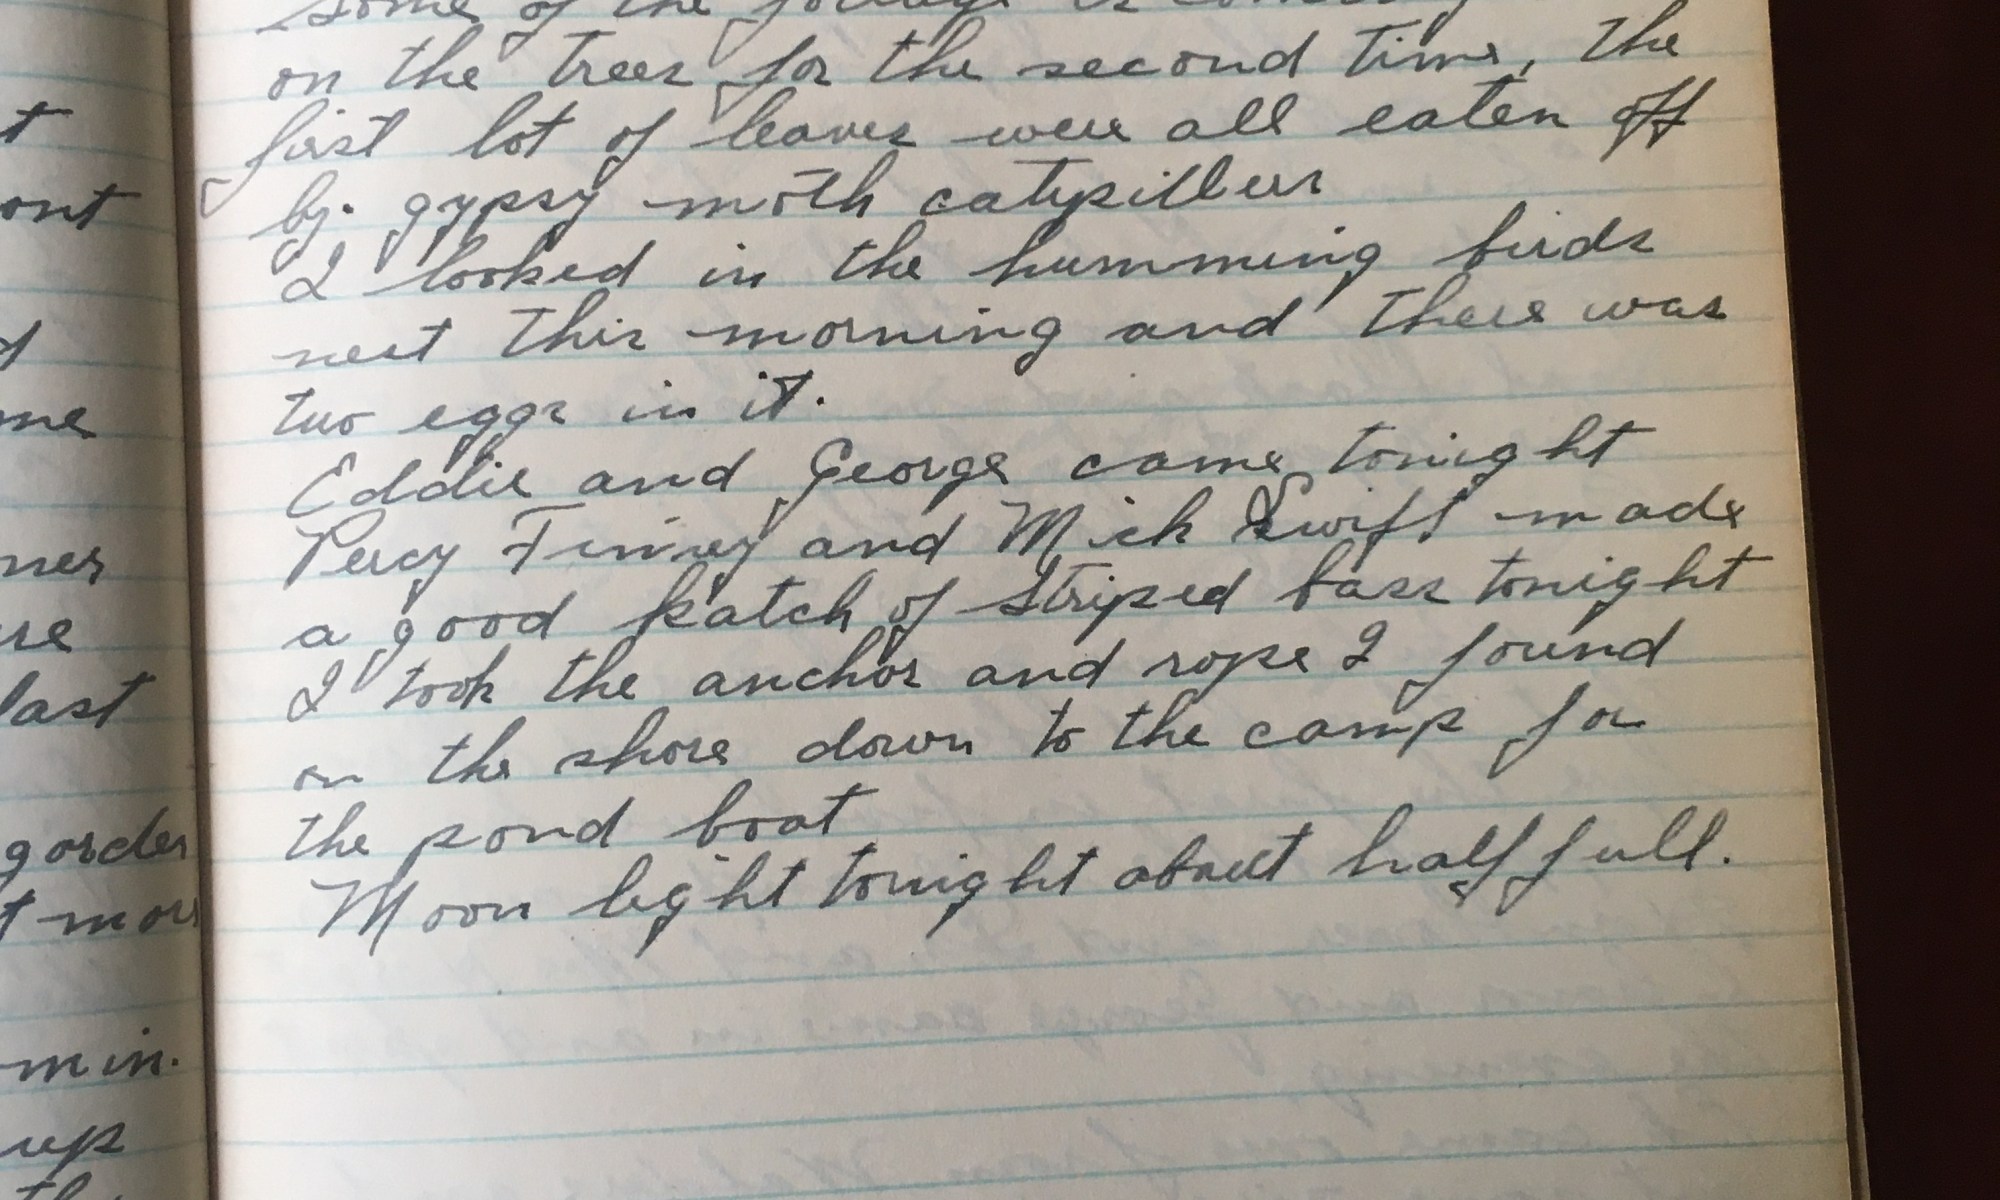 t
ont
me
mes
re
last
gorder
t mor
min.
up
some of the foliage is coming
on the trees for the second time, the
first lot of leaves were all eaten off
by. gypsy moth catepillers
I looked in the humming birds
nest this morning and there was
two eggs in it.
Eddie and George came tonight
Percy Finney and Mick Swift made
a good katch of Striped bass tonight
I took the anchor and rope I found
on the shore down to the camp for
the pond boat
Moon light tonight about half full.